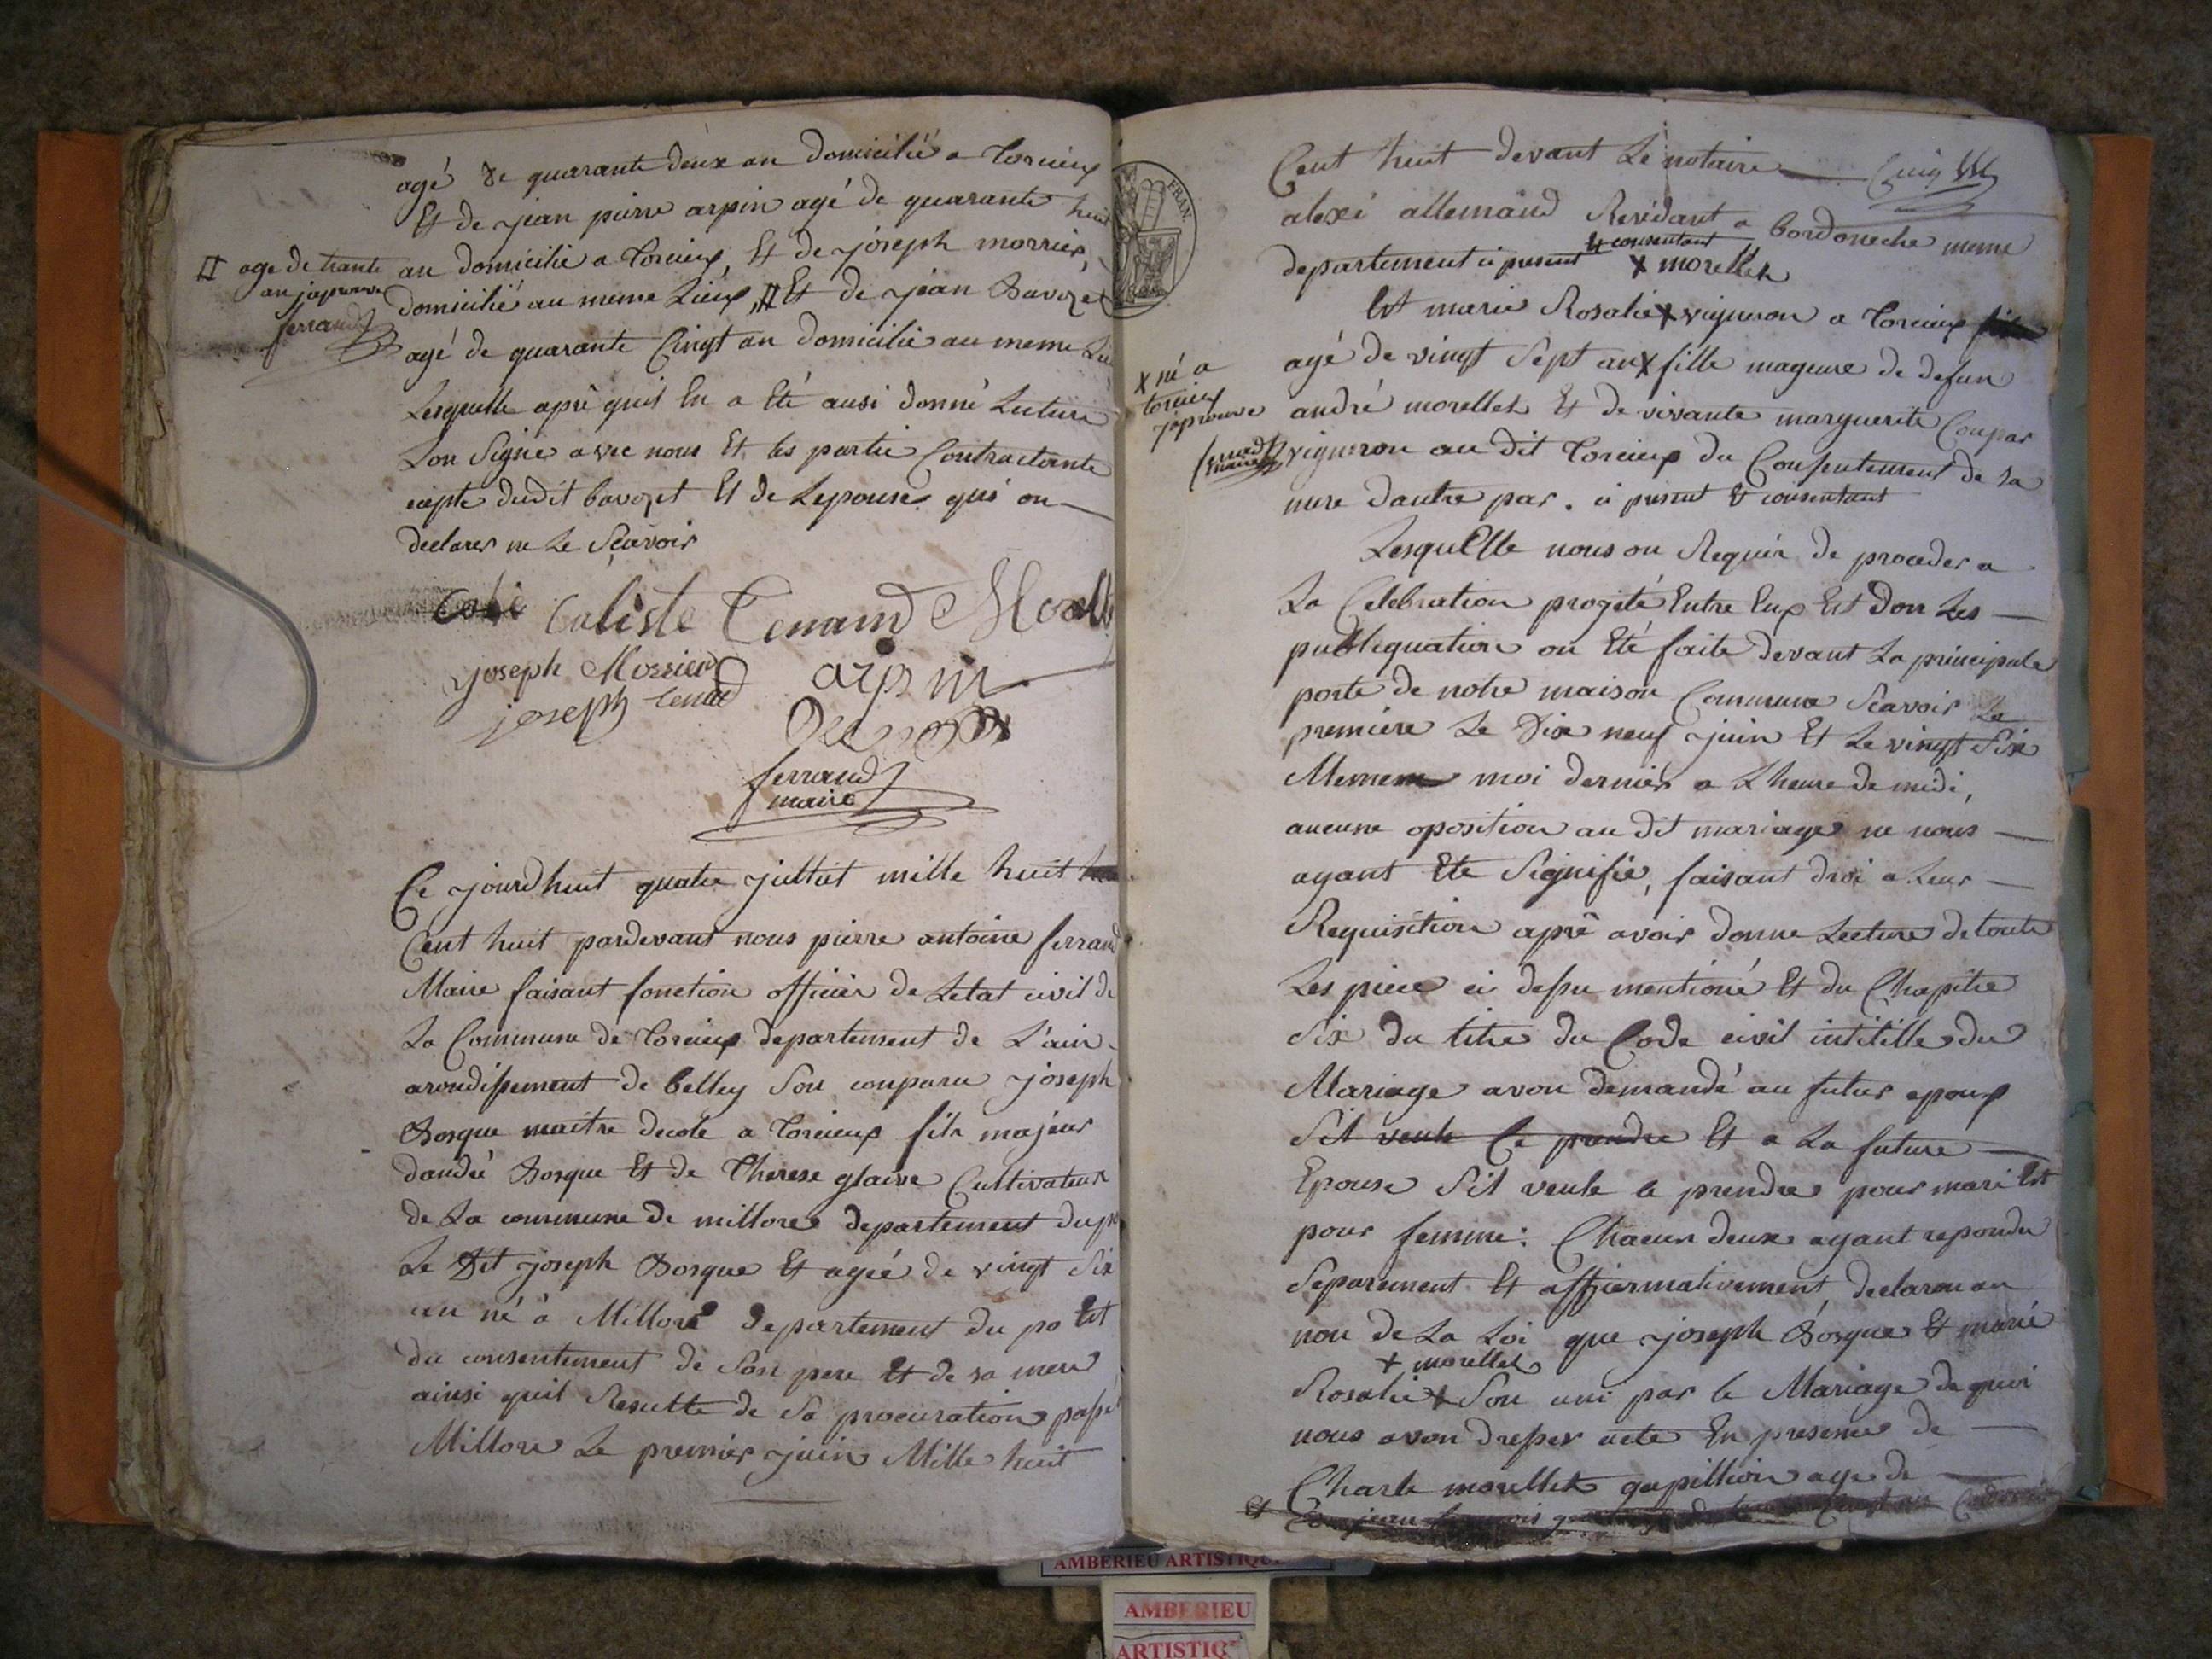 agé de quarante deux an domicilié a torcieux
Et de jean pierre arpin agé de quarante huit
an domicilié a torcieux, Et de joseph morrier,
domicilié au meme Lieux, # Et de jean Bavozet
agé de quarante Cinqt an domicilié au meme Lie
# age de trante
an japrouve
ferrand
Lesquelle aprè quil En a Eté ausi donné Lecture
Lon Signé avec nous Et les partie Contractante
exepte dudit bavozet Et de Lepouse qui on
declarer ne Le Scavoir
Caliste Tenand
joseph Morrier arpin
joseph tenad
ferrand
maire
Ce jourdhuit quatre juillait mille huit
Cent huit pardevant nous pierre antoine ferrand
Maire faisant fonction officier de Letat civil de
La Commune de torcieux departement de L'ain
arondissement de belley Son conparu joseph
Bosque maitre decole a torcieux fils majeur
dandré Bosque Et de Therese glaive Cultivateur
de La commune de millore departement du po
Le Dit joseph Bosque Et agée de vingt Six
an né à Millore departement du po Et
du consentement de Son pere Et de sa mere
ainsi quil Resulte de Sa procuration passé
Millore Le premier juin Mille huit
FRAN
Cent huit devant Le notaire
alexi allemand Residant a bordoneche meme
departement ci present Et consentant
X morellet
Et marie Rosalie X vigneron a torcieux
agé de vingt Sept an X fille mageure de defun
X né a
torcieux
japrouve
ferrand
maire
andré morellet Et de vivante marguerite Coupar
vigneron au dit torcieux du Consentement de sa
mere dautre par. ci present & consentant
LesquElle nous on Requir de proceder a
La Celebration progeté Entre Eux Est don Les
publiquation on Eté faite devant La principale
porte de notre maison Commune Scavoir La
premiere Le Dix neuf juin Et Le vingt Six
Meme moi dernier a Lheure de midi,
aucune oposition au dit mariage ne nous
ayant Eté Signifié, faisant droi a Leur
Requisition aprè avoir donne Lecture de toute
Les piece ci dessu mentioné Et du Chapitre
Six du titre du Code civil intitille du
Mariage avon demandé au futur epoux
Sil veule Ce prendre Et a La future
Epouse Sil veule le prendre pour mari Et
pour femme: Chacun deux ayant repondu
Separement Et affiermativement declaron au
non de La Loi que joseph Bosque Et marie
+ morellet
Rosalie + Son uni par le Mariage de quoi
nous avon dresser acte En presence de
Charle morellet gapillion age de
Et jean